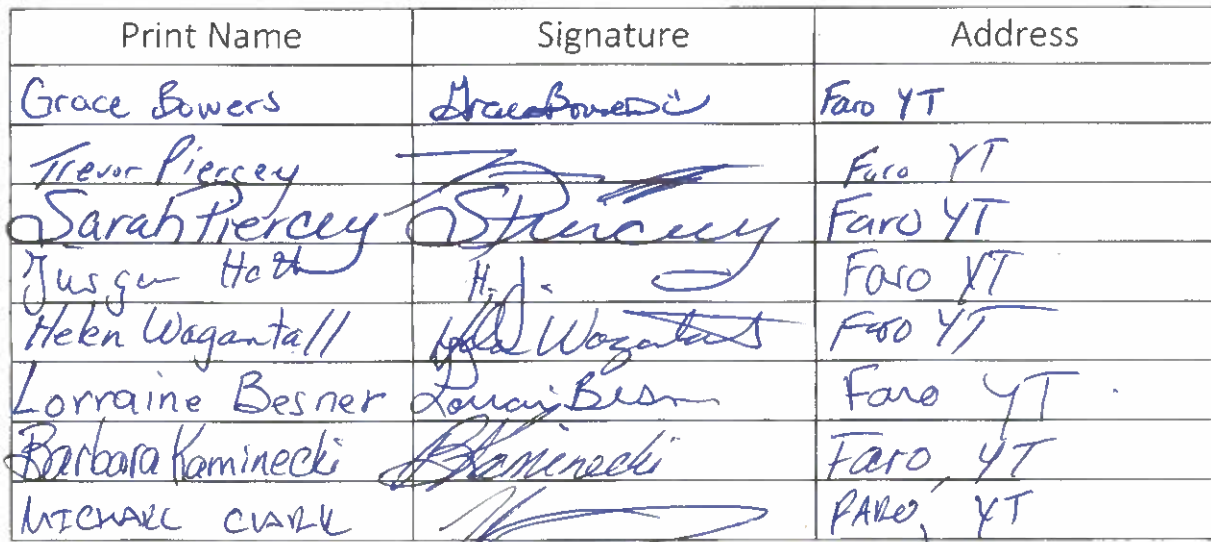 Print Name Signature Address
Grace Bowers Grace Bowers Faro YT
Trevor Piercey Faro YT
Sarah Piercey SPiercey Faro YT
H. Faro YT
Helen Wagantall Helen Wagantall Faro YT
Lorraine Besner Lorrain Besn Faro YT
Barbara Kaminecki BKaminecki Faro YT
MICHAEL CLARK FARO, YT